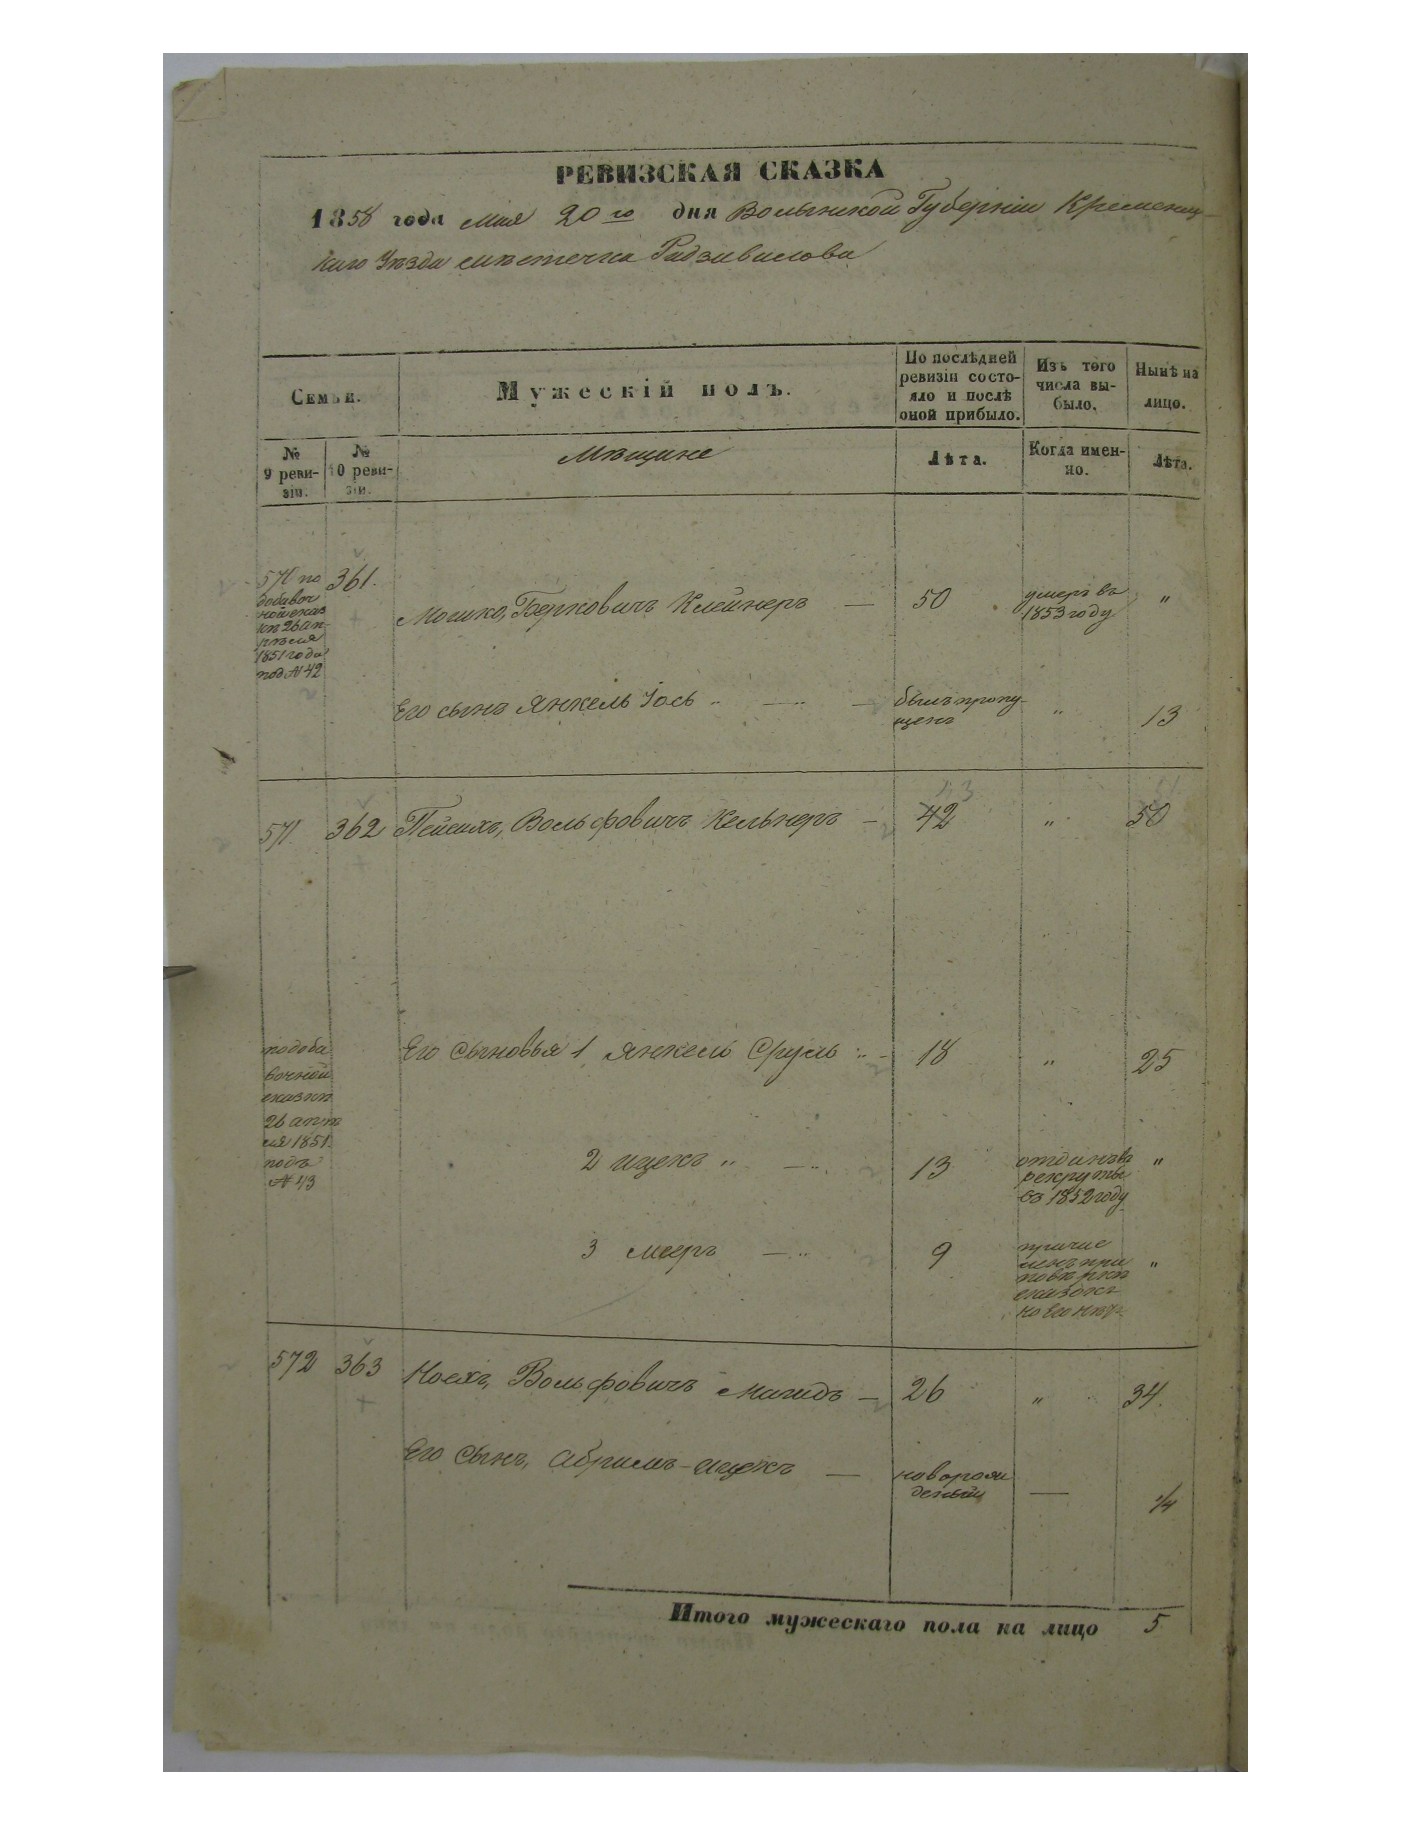 РЕВИЗСКАЯ СКАЗКА
1858 года мая 20го дня Волынской Губернии Кременец-
каго Уѣзда мѣстечка Радзивилова
Семьи.
Мужескій полъ.
По послѣдней
ревизіи состо-
яло и послѣ
оной прибыло.
Изъ того
числа вы-
было.
Нынѣ на
лицо.
№
9 реви-
зіи.
№
10 реви-
зіи.
Мѣщане
Лѣта.
Когда имен-
но.
Лѣта.
571 по
добавоч
ной сказ
кѣ 26 ап
рѣля
1851 года
под № 42
361.
Мошко, Беркович Клейнеръ — 50 умеръ въ
1853 году "
Его сынъ Янкель Іось " — " — былъ пропу-
щенъ " 13
571 362 Пейсихъ, Вольфовичъ Кельнеръ — 42 " 50
43 51
по доба
вочной
сказкѣ
26 апрѣ
ля 1851
подъ
№ 43
Его Сыновья 1 Янкель Сруль " - 18 " 25
2 Ицекъ " — " 13 отданъ въ
рекруты
въ 1852 году "
3 Мееръ — " 9 причис
ленъ при
повѣркѣ
сказокъ
но его нѣтъ "
572 363 Ноехъ, Вольфовичъ Магидъ — 26 " 34.
Его Сынъ, Абрамъ-Ицекъ — новорож
деный — 1/4
Итого мужескаго пола на лицо 5